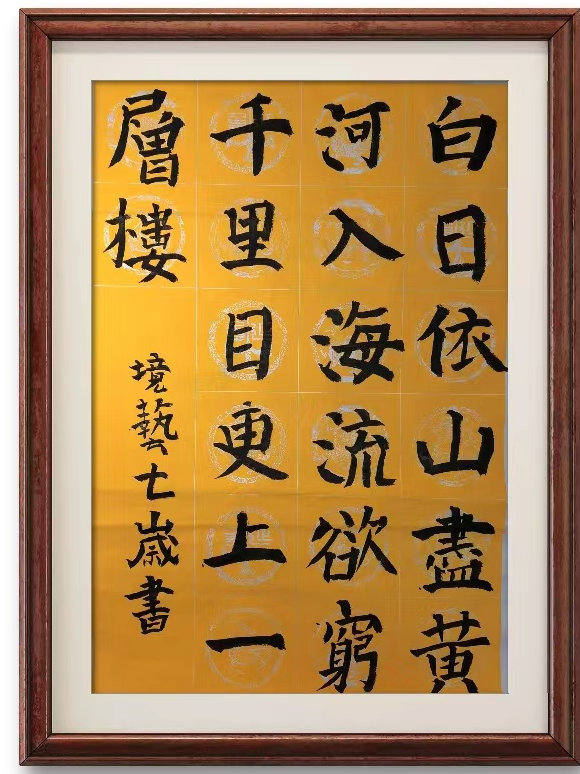 白日依山盡黃
河入海流欲窮
千里目更上一
層樓
境藝七歲書